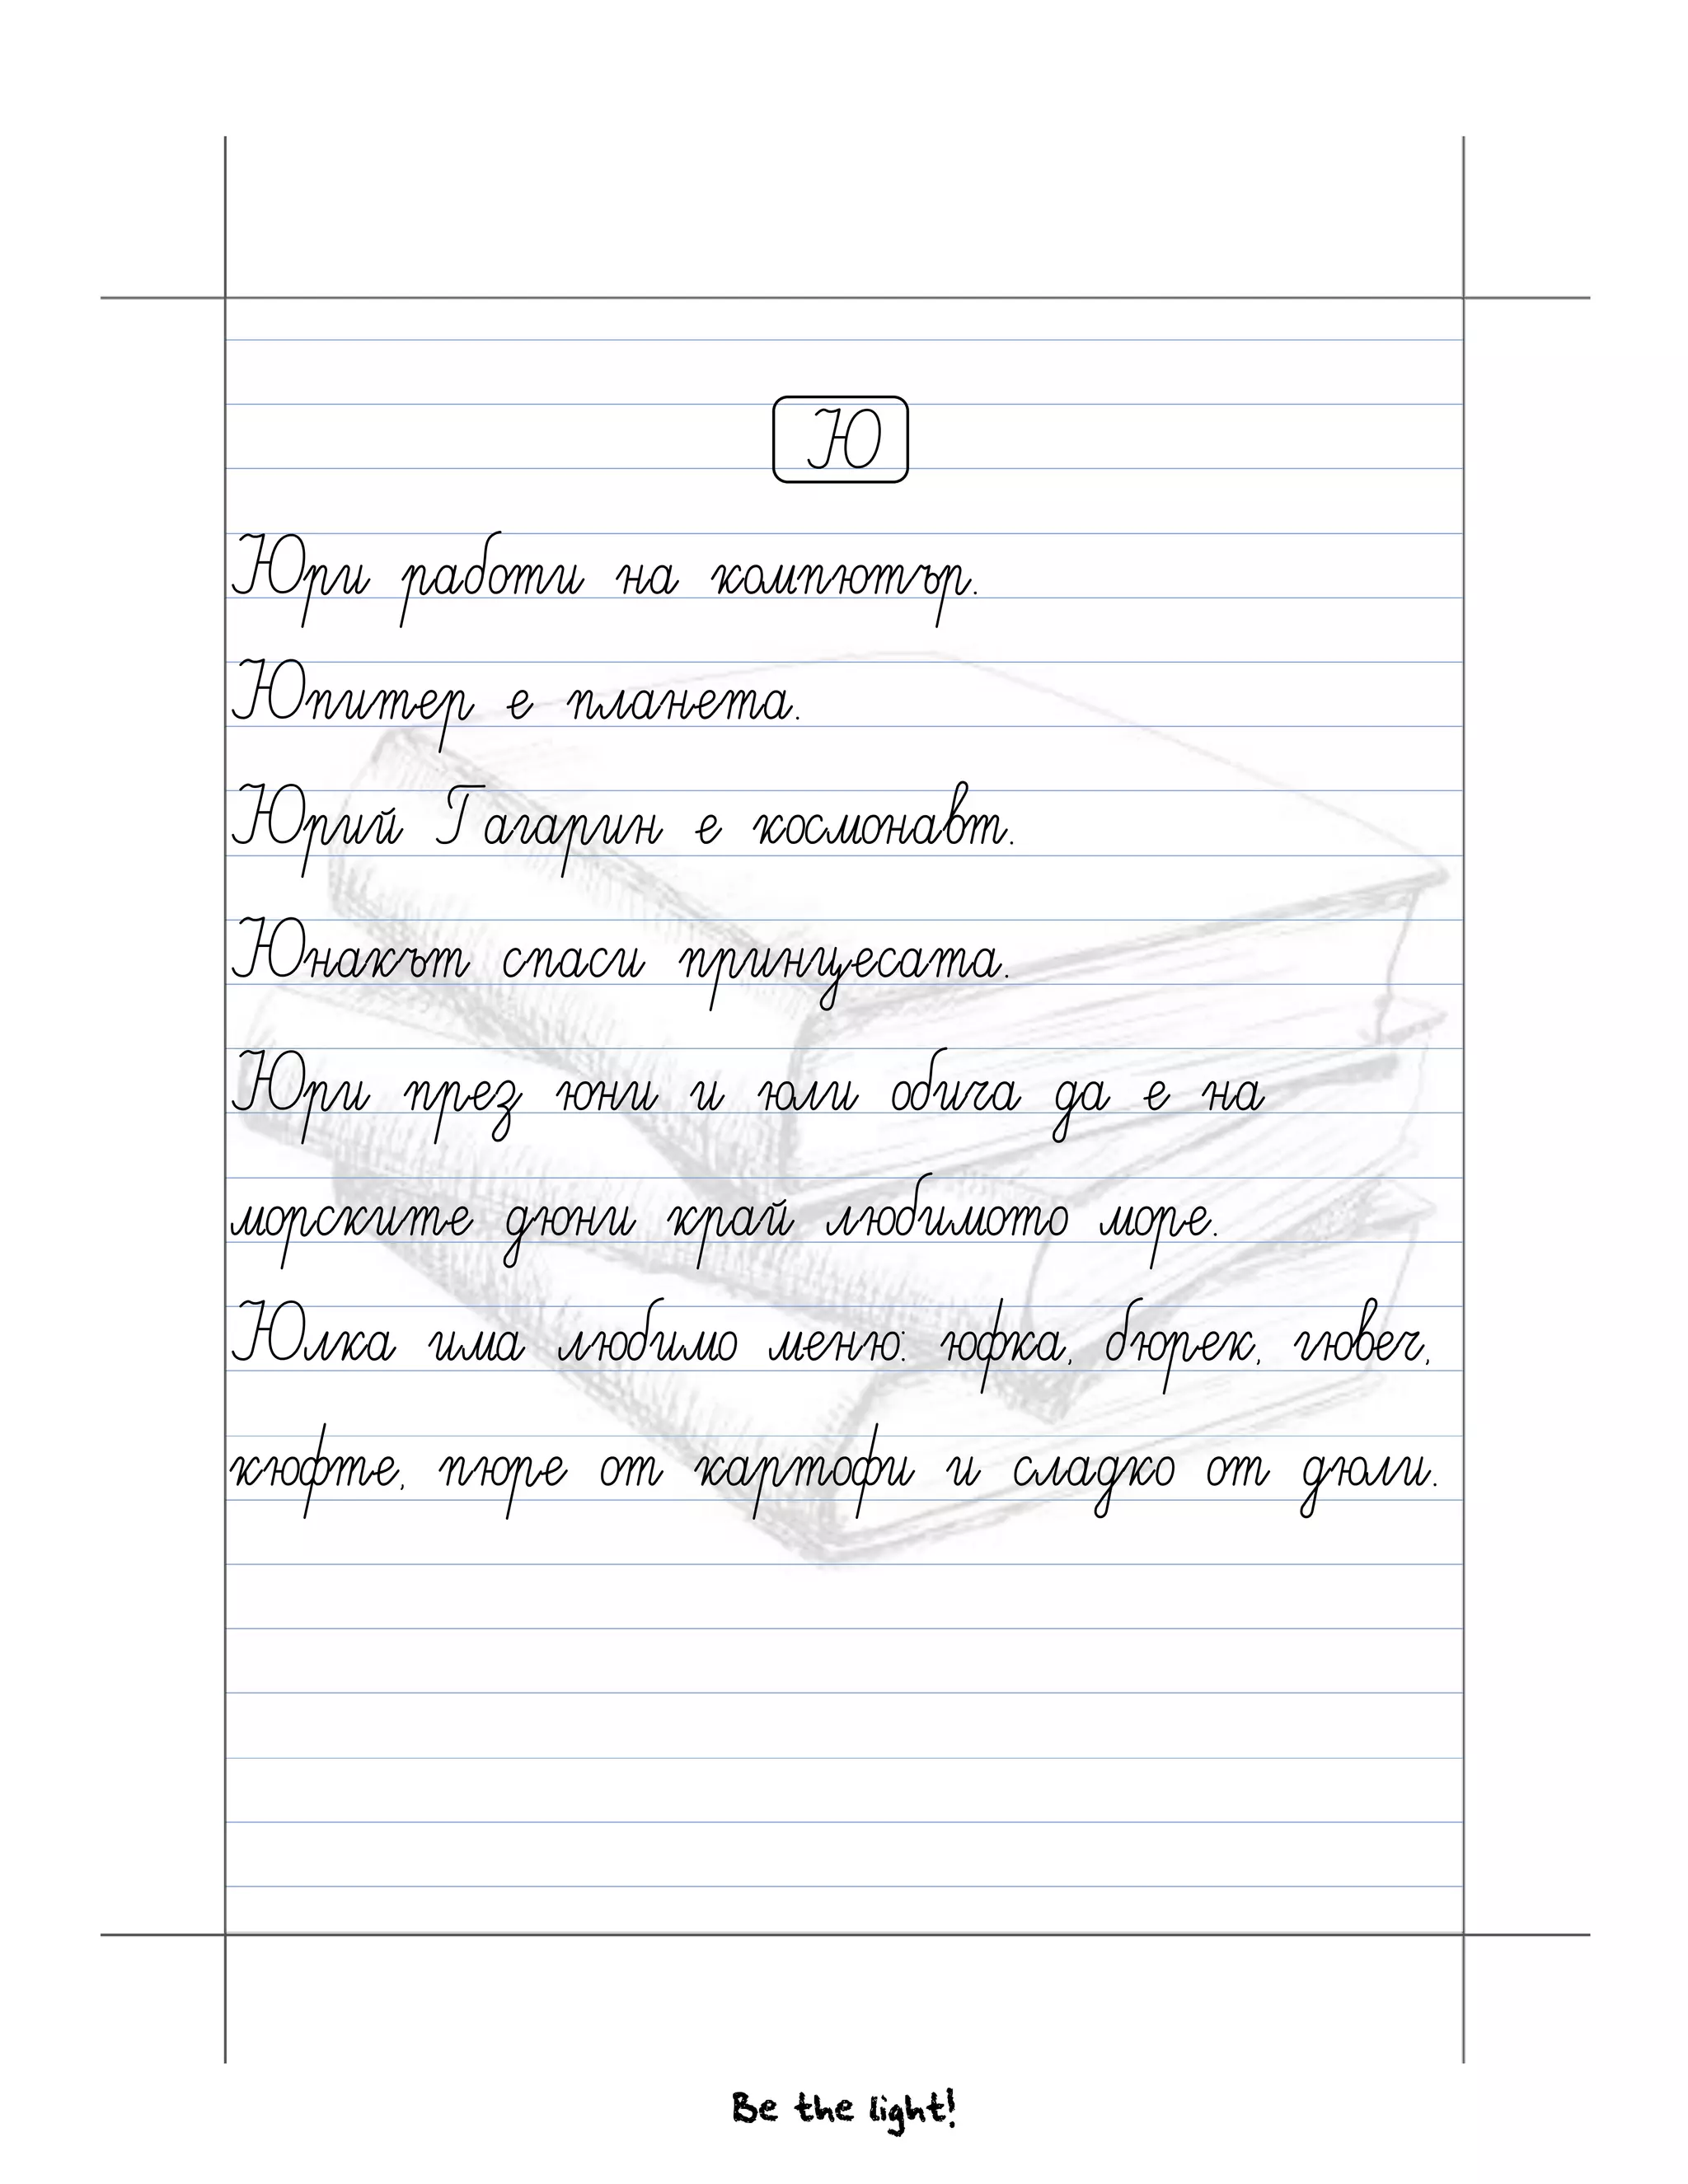 Ю
Юри работи на компютър.
Юпитер е планета.
Юрий Гагарин е космонавт.
Юнакът спаси принцесата.
Юри през юни и юли обича да е на
морските дюни край любимото море.
Юлка има любимо меню: юфка, бюрек, гювеч,
кюфте, пюре от картофи и сладко от дюли.
Be the light!